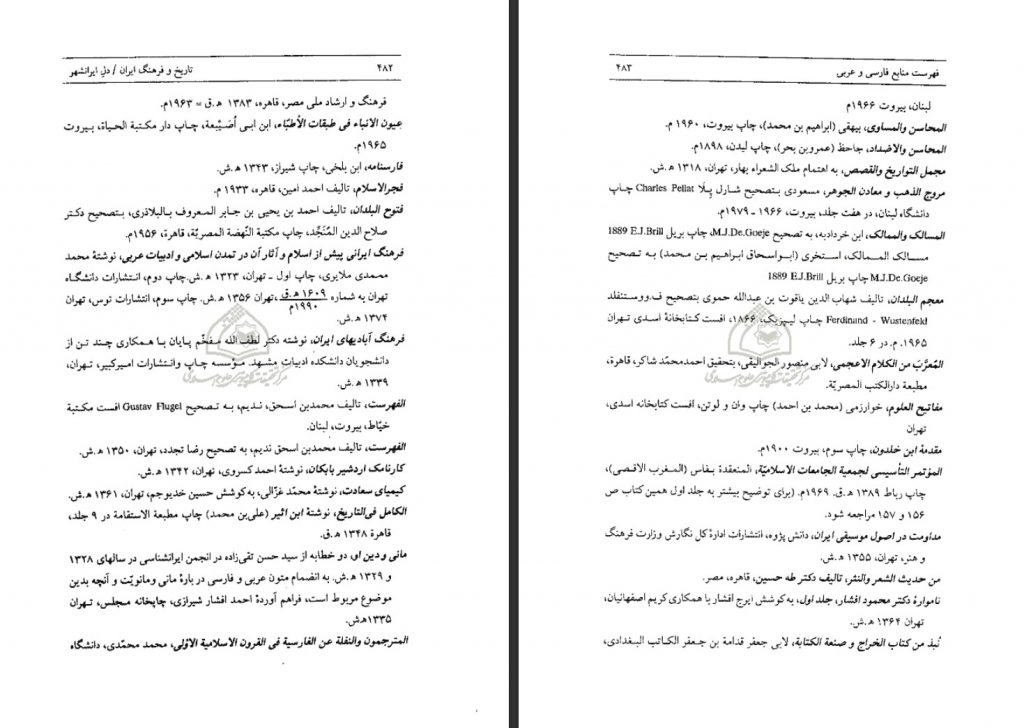 ۴۸۲
تاریخ و فرهنگ ایران / دل ایرانشهر
فرهنگ و ارشاد ملی مصر، قاهره، ۱۳۸۳ ه‍.ق = ۱۹۶۳م.
عیون الانباء فی طبقات الأطبّاء، ابن ابی أُصَیْبعة، چاپ دار مکتبة الحیاة، بیروت
۱۹۶۵م.
فارسنامه، ابن بلخی، چاپ شیراز، ۱۳۴۳ ه‍.ش.
فجرالاسلام، تالیف احمد امین، قاهره، ۱۹۳۳ م.
فتوح البلدان، تالیف احمد بن یحیی بن جابر المعروف بالبلاذری، بتصحیح دکتر
صلاح الدین المُنَجِّد، چاپ مکتبة النَّهضة المصریّة، قاهرة، ۱۹۵۶م.
فرهنگ ایرانی پیش از اسلام و آثار آن در تمدن اسلامی و ادبیات عربی، نوشتهٔ محمد
محمدی ملایری، چاپ اول ـ تهران، ۱۳۲۳ ه‍.ش.چاپ دوم، انتشارات دانشگاه
تهران به شماره ۱۶۰۹ ه‍.ق / ۱۹۹۰م ،تهران ۱۳۵۶ ه‍.ش. چاپ سوم، انتشارات توس، تهران
۱۳۷۴ ه‍.ش.
فرهنگ آبادیهای ایران، نوشته دکتر لطف الله مفخّم پایان با همکاری چند تن از
دانشجویان دانشکده ادبیات مشهد. مؤسسه چاپ وانتشارات امیرکبیر، تهران،
۱۳۳۹ ه‍.ش.
الفهرست، تالیف محمدبن اسحق، ندیم، به تصحیح Gustav Flugel افست مکتبة
خیّاط، بیروت، لبنان.
الفهرست، تالیف محمدبن اسحق ندیم، به تصحیح رضا تجدد، تهران، ۱۳۵۰ ه‍.ش.
کارنامک اردشیر بابکان، نوشتهٔ احمد کسروی، تهران، ۱۳۴۲ ه‍.ش.
کیمیای سعادت، نوشتهٔ محمّد غزّالی، به‌کوشش حسین خدیوجم، تهران، ۱۳۶۱ ه‍.ش.
الکامل فی‌التاریخ، نوشتهٔ ابن اثیر (علی‌بن محمد) چاپ مطبعة الاستقامة در ۹ جلد،
قاهرة ۱۳۴۸ ه‍.ق.
مانی و دین او، دو خطابه از سید حسن تقی‌زاده در انجمن ایرانشناسی در سالهای ۱۳۲۸
و ۱۳۲۹ ه‍.ش. به انضمام متون عربی و فارسی در بارهٔ مانی ومانویّت و آنچه بدین
موضوع مربوط است، فراهم آوردهٔ احمد افشار شیرازی، چاپخانه مجلس، تهران
۱۳۳۵ه‍.ش.
المترجمون والنقلة عن الفارسیة فی القرون الاسلامیة الاوّلی، محمد محمّدی، دانشگاه
فهرست منابع فارسی و عربی
۴۸۳
لبنان، بیروت ۱۹۶۶م
المحاسن والمساوی، بیهقی (ابراهیم بن محمد)، چاپ بیروت، ۱۹۶۰ م.
المحاسن والاضداد، جاحظ (عمروبن بحر)، چاپ لیدن، ۱۸۹۸م.
مجمل التواریخ والقصص، به اهتمام ملک الشعراء بهار، تهران، ۱۳۱۸ ه‍.ش.
مروج الذهب و معادن الجوهر، مسعودی بتصحیح شارل پلّا Charles Pellat چاپ
دانشگاه لبنان، در هفت جلد، بیروت، ۱۹۶۶ ـ ۱۹۷۹م.
المسالک والممالک، ابن خردادبه، به تصحیح M.J.De.Goeje، چاپ بریل 1889 E.J.Brill
مسالک الممالک، استخری (ابواسحاق ابراهیم بن محمد) به تصحیح
M.J.De.Goeje چاپ بریل 1889 E.J.Brill
معجم البلدان، تالیف شهاب الدین یاقوت بن عبدالله حموی بتصحیح ف.ووستنفلد
Ferdinand - Wustenfeld چاپ لیپزیک، ۱۸۶۶، افست کتابخانهٔ اسدی تهران
۱۹۶۵. م. در ۶ جلد.
المُعرَّب من الکلام الاعجمی، لابی منصور الجوالیقی، بتحقیق احمدمحمّد شاکر، قاهرة،
مطبعة دارالکتب المصریّة.
مفاتیح العلوم، خوارزمی (محمد بن احمد) چاپ وان و لوتن، افست کتابخانه اسدی،
تهران
مقدمة ابن خلدون، چاپ سوم، بیروت ۱۹۰۰م.
المؤتمر التأسیسی لجمعیة الجامعات الاسلامیّة، المنعقدة بفاس (المغرب الاقصی)،
چاپ رباط ۱۳۸۹ ه‍.ق. ۱۹۶۹م. (برای توضیح بیشتر به جلد اول همین کتاب ص
۱۵۶ و ۱۵۷ مراجعه شود.
مداومت در اصول موسیقی ایران، دانش پژوه، انتشارات ادارهٔ کل نگارش وزارت فرهنگ
و هنر، تهران، ۱۳۵۵ ه‍.ش.
من حدیث الشعر والنثر، تالیف دکتر طه حسین، قاهره، مصر.
نامواره‌ٔ دکتر محمود افشار، جلد اول، به‌کوشش ایرج افشار با همکاری کریم اصفهانیان،
تهران ۱۳۶۴ ه‍.ش.
نُبذ من کتاب الخراج و صنعة الکتابة، لابی جعفر قدامة بن جعفر الکاتب البغدادی،